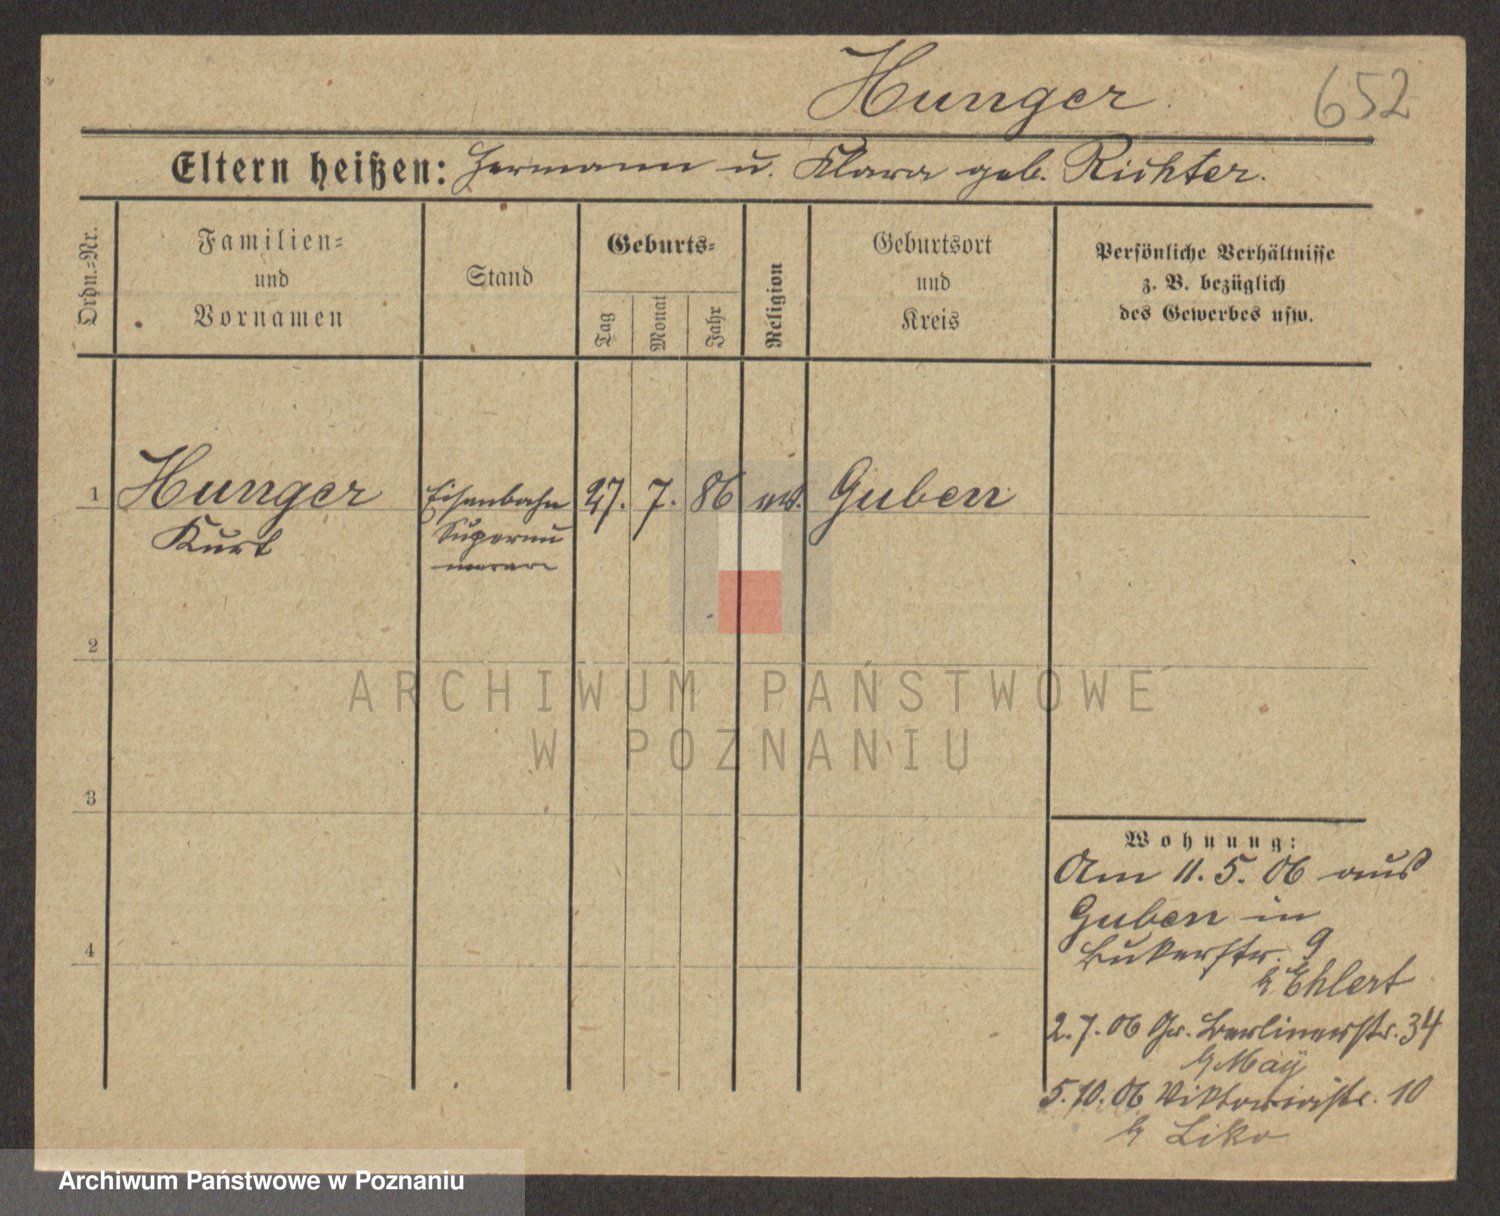 Hunger 652
Eltern heißen: Hermann u. Klara geb. Richter.
Ordn.-Nr.
Familien-
und
Vornamen
Stand
Geburts-
Tag
Monat
Jahr
Religion
Geburtsort
und
Kreis
Persönliche Verhältnisse
z. B. bezüglich
des Gewerbes usw.
1 Hunger Eisenbahn 27. 7. 86 ev. Guben
Kurt Supernu
merar
2
3
4
Wohnung:
Am 11. 5. 06 aus
Guben in
Bukerstr. 9
b/ Ehlert
2. 7. 06 Gr. Berlinerstr. 34
b/ May
5. 10. 06 Viktoriastr. 10
b/ Liko
ARCHIWUM PAŃSTWOWE
W POZNANIU
Archiwum Państwowe w Poznaniu